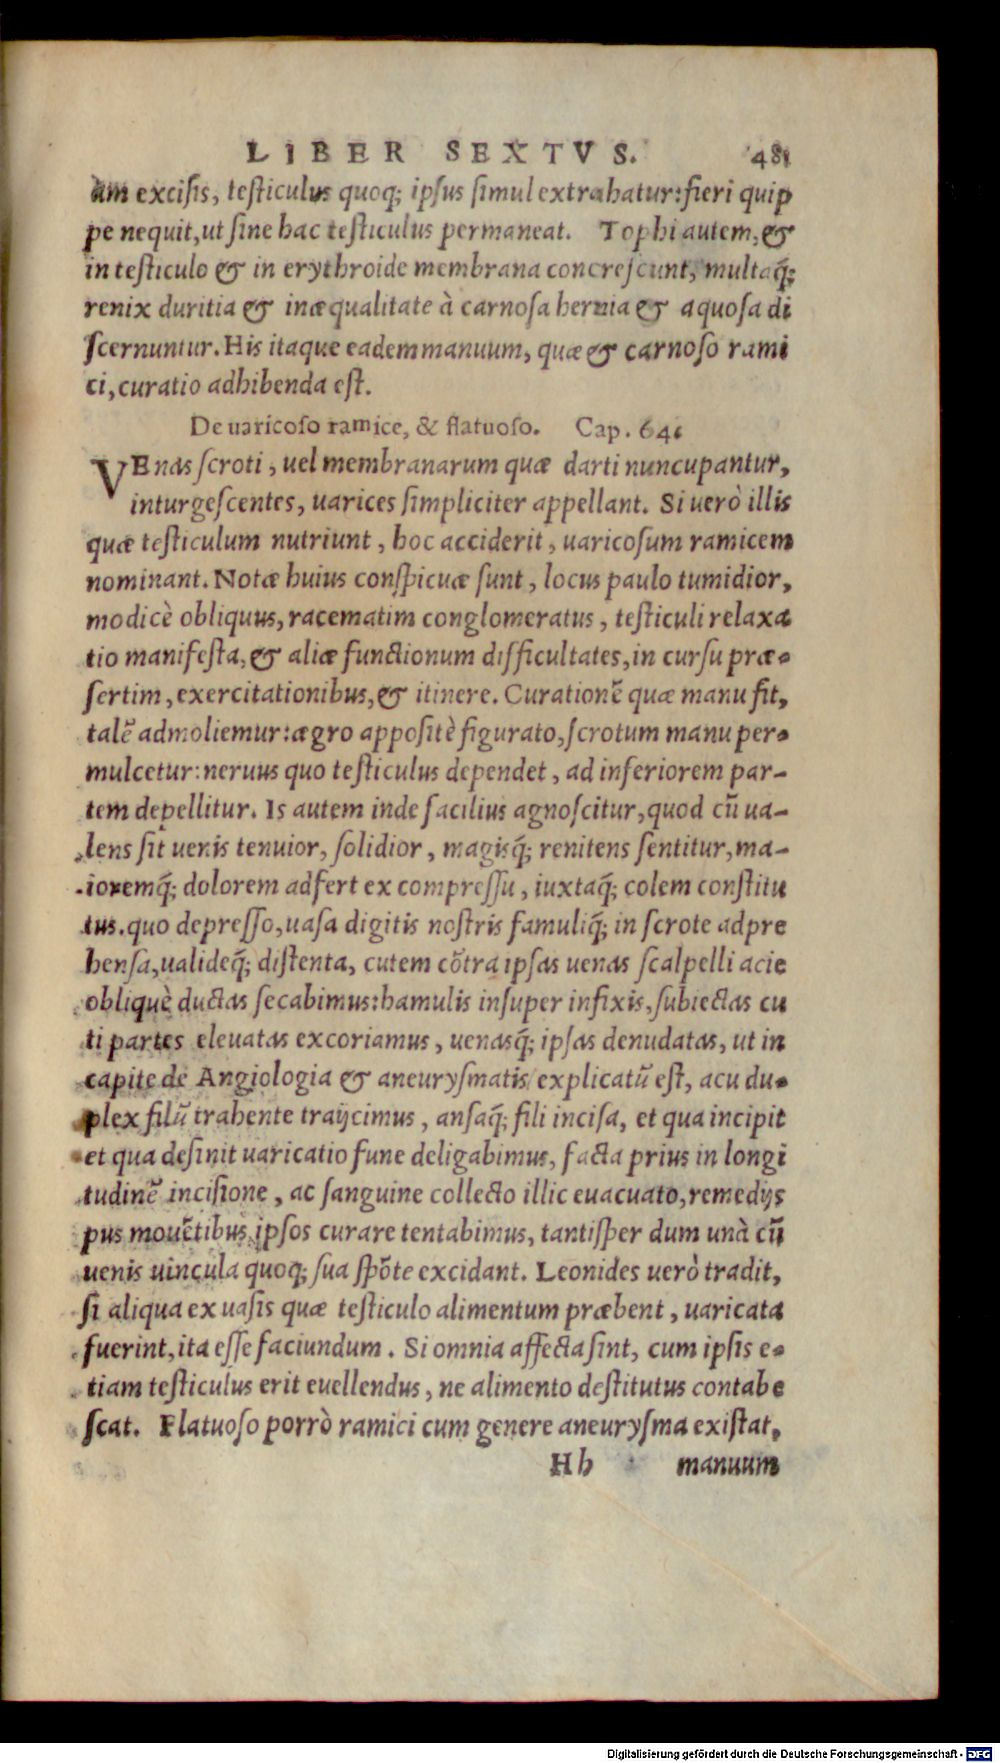 LIBER SEXTVS. 481
am excisis, testiculus quoq; ipsus simul extrahatur: fieri quip
pe nequit, ut sine hac testiculus permaneat. Tophi autem, &
in testiculo & in erythroide membrana concrescunt, multaq́;
renix duritia & inæqualitate à carnosa hernia & aquosa di
scernuntur. His itaque eadem manuum, quæ & carnoso rami
ci, curatio adhibenda est.
De uaricoso ramice, & flatuoso. Cap. 64.
VEnas scroti, uel membranarum quæ darti nuncupantur,
inturgescentes, uarices simpliciter appellant. Si uerò illis
quæ testiculum nutriunt, hoc acciderit, uaricosum ramicem
nominant. Notæ huius conspicuæ sunt, locus paulo tumidior,
modicè obliquus, racematim conglomeratus, testiculi relaxa
tio manifesta, & aliæ functionum difficultates, in cursu præ-
sertim, exercitationibus, & itinere. Curationẽ quæ manu fit,
talẽ admoliemur: ægro appositè figurato, scrotum manu per-
mulcetur: neruus quo testiculus dependet, ad inferiorem par-
tem depellitur. Is autem inde facilius agnoscitur, quod cũ ua-
lens sit uenis tenuior, solidior, magisq́; renitens sentitur, ma-
ioremq́; dolorem adfert ex compressu, iuxtaq́; colem constitu
tus. quo depresso, uasa digitis nostris famuliq́; in scrote adpre
hensa, ualideq́; distenta, cutem cõtra ipsas uenas scalpelli acie
obliquè ductas secabimus: hamulis insuper infixis, subiectas cu
ti partes eleuatas excoriamus, uenasq́; ipsas denudatas, ut in
capite de Angiologia & aneurysmatis explicatũ est, acu du-
plex filũ trahente traijcimus, ansaq́; fili incisa, et qua incipit
et qua desinit uaricatio fune deligabimus, facta prius in longi
tudinẽ incisione, ac sanguine collecto illic euacuato, remedijs
pus mouẽtibus ipsos curare tentabimus, tantisper dum unà cũ
uenis uincula quoq; sua spõte excidant. Leonides uerò tradit,
si aliqua ex uasis quæ testiculo alimentum præbent, uaricata
fuerint, ita esse faciundum. Si omnia affecta sint, cum ipsis e-
tiam testiculus erit euellendus, ne alimento destitutus contabe
scat. Flatuoso porrò ramici cum genere aneurysma existat,
Hh manuum
Digitalisierung gefördert durch die Deutsche Forschungsgemeinschaft - DFG